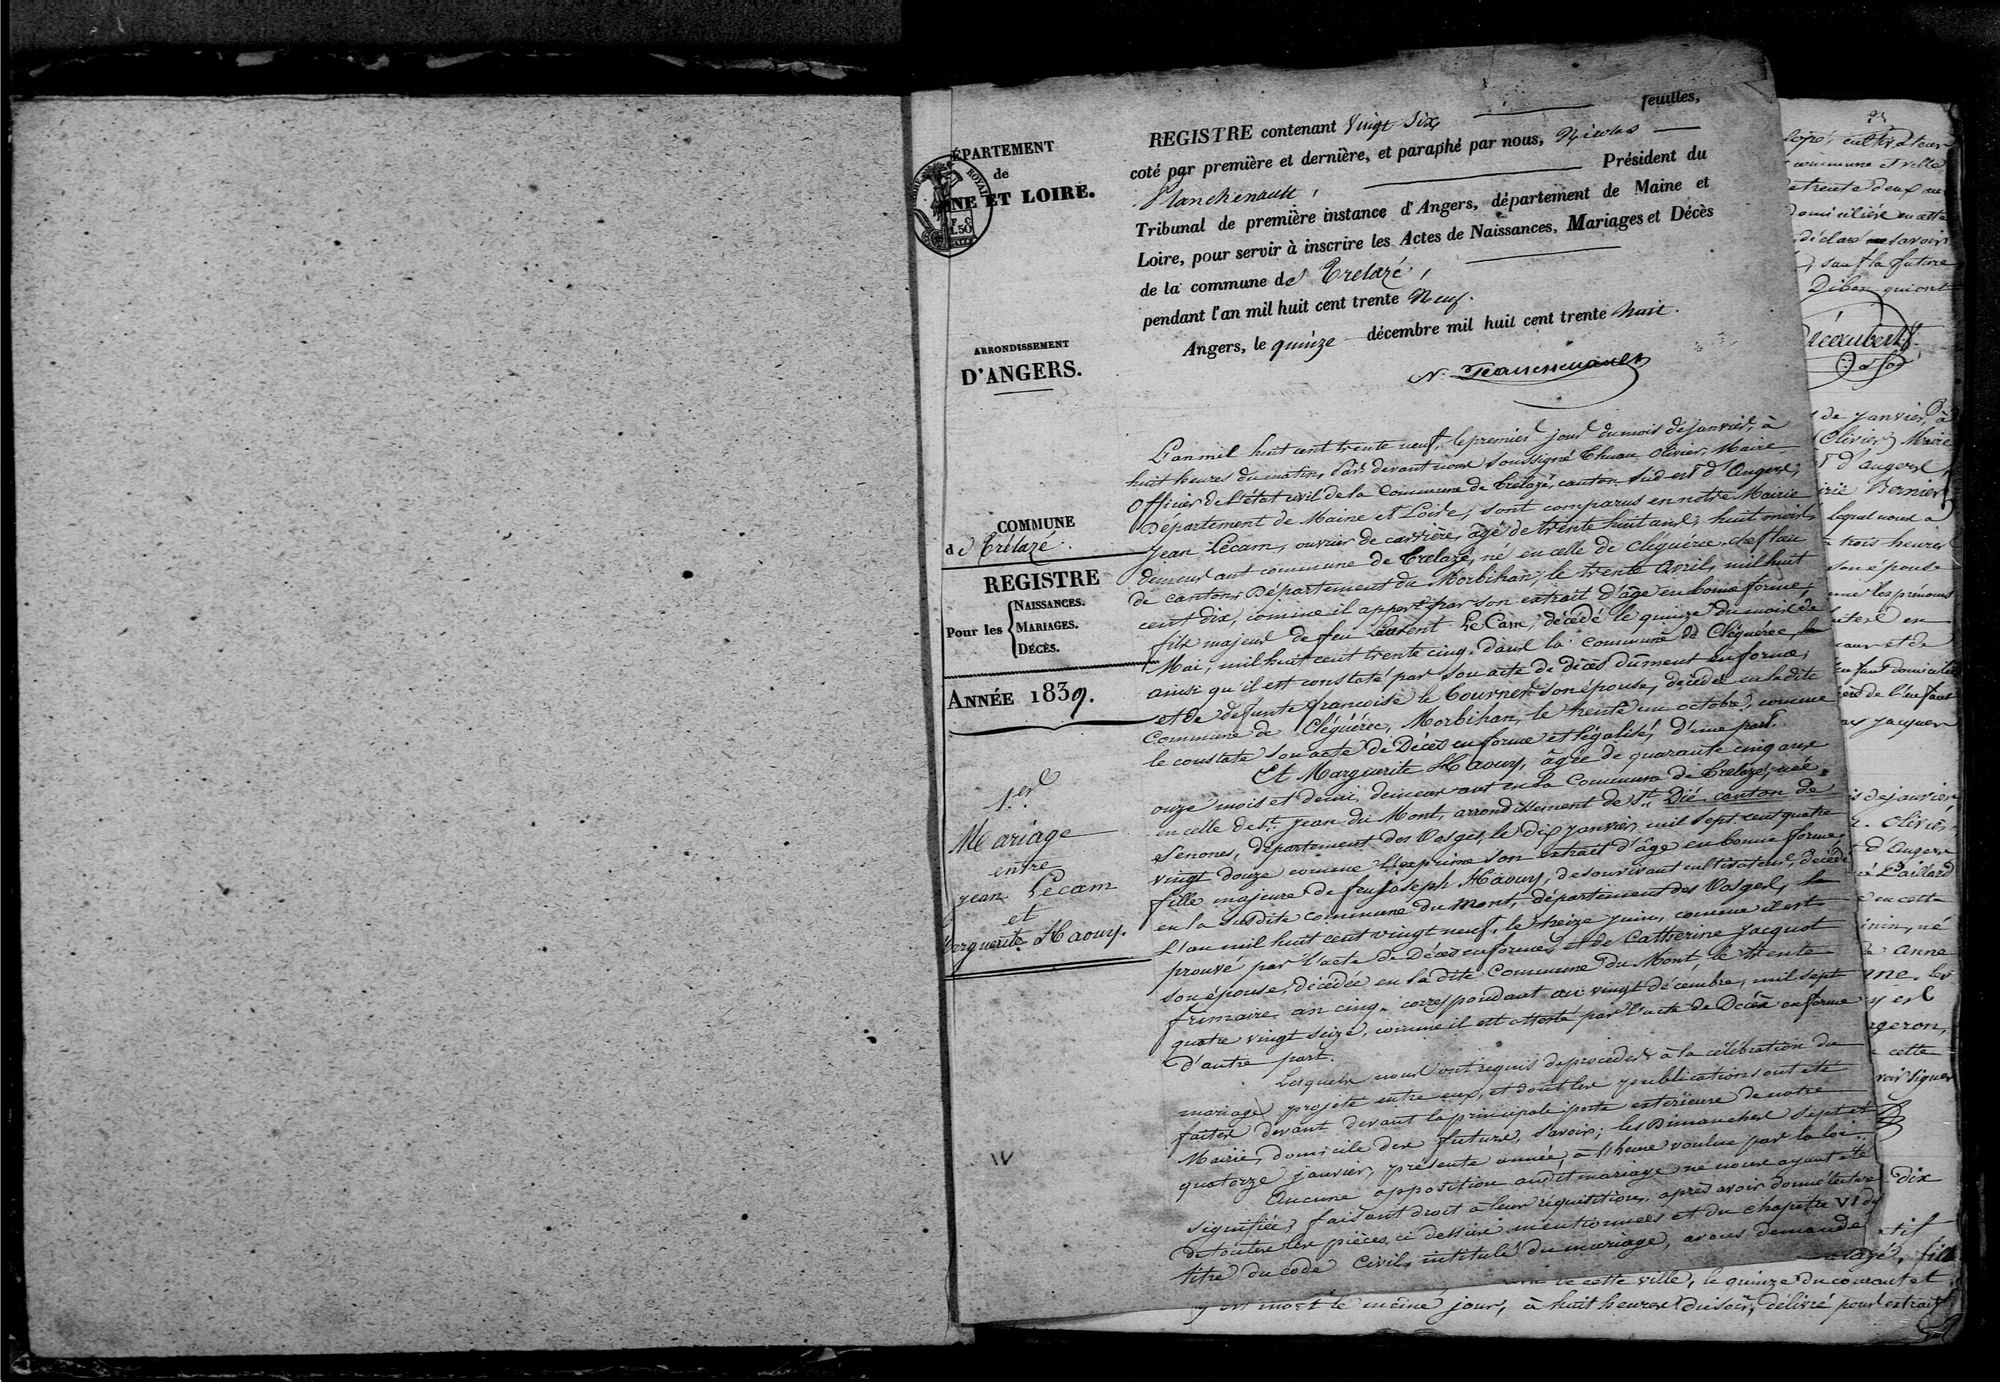 ÉPARTEMENT
de
NE ET LOIRE.
ROYAL
1.50
ARRONDISSEMENT
D'ANGERS.
COMMUNE
de Trélazé.
REGISTRE
Pour les
NAISSANCES.
MARIAGES.
DÉCÈS.
ANNÉE 1839.
1er
Mariage
entre
jean Lecam
et
Marguerite Haouy.
REGISTRE contenant vingt six feuilles,
coté par première et dernière, et paraphé par nous, Nicolas
Planchenault, Président du
Tribunal de première instance d'Angers, département de Maine et
Loire, pour servir à inscrire les Actes de Naissances, Mariages et Décès
de la commune de Trelazé,
pendant l'an mil huit cent trente Neuf.
Angers, le quinze décembre mil huit cent trente huit.
N. Planchenault
L'an mil huit cent trente neuf, le premier jour du mois de janvier, à
huit heures du matin, Par devant nous soussigné Thuau Olivier, Maire
Officier de l'état civil de la Commune de Trelazé, canton sud est d'Angers,
Département de Maine et Loire, sont comparus en notre Mairie
jean Lecam, ouvrier de carrière, âgé de trente huit ans, huit mois,
demeurant commune de Trelazé, né en celle de Cléguérec, chef lieu
de canton, Département du Morbihan, le trente Avril, mil huit
cent dix, comme il appert par son extrait d'âge en bonne forme,
fils majeur de feu Laurent LeCam, décédé le quinze du mois de
Mai, mil huit cent trente cinq, dans la Commune de Cléguérec,
ainsi qu'il est constaté par son acte de décès dûment en forme,
et de defunte francoise le Tourner son épouse, décédée en ladite
Commune de Cléguérec, Morbihan, le trente un octobre, comme
le constate son acte de Décès en forme et légalisé, d'une part.
Et Marguerite Haouy, âgée de quarante cinq ans
onze mois et demi, demeurant en la Commune de Trelazé, née
en celle de St. jean du Mont, arrondissement de St. Dié, canton de
Senones, département des Vosges, le dix janvier, mil sept cent quatre
vingt douze comme l'exprime son extrait d'âge en bonne forme,
fille majeure de feu joseph Haouy, de son vivant cultivateur, décédé
en la susdite commune du Mont, département des Vosges,
l'an mil huit cent vingt neuf, le treize juin, comme il est
prouvé par l'acte de Décès en forme, et de Catherine jacquot
son épouse, décédée en ladite Commune du Mont, le trente
frimaire an cinq, correspondant au vingt décembre, mil sept
quatre vingt seize, comme il est attesté par l'acte de Décès en forme
d'autre part.
Lesquels nous ont requis de procéder à la célébration du
mariage projeté entre eux, et dont les publications ont été
faites devant devant la principale porte extérieure de notre
Mairie, domicile des futurs, savoir; les Dimanches sept et
quatorze janvier, présente année, à l'heure voulue par la loi.
Aucune opposition audit mariage ne nous ayant été
signifiée, faisant droit à leur réquisition, après avoir donné lecture
de toutes les pièces ci dessus mentionnées et du chapitre VI du
titre du code Civil, intitulé du mariage, avons demandé
IV
cultivateur
commune et ville
trente deux
domiciliée en cette
déclaré savoir
sauf la future
qui ont
de janvier, à
Olivier, Maire
d'angers
Bernier
lequel nous a
trois heures
son épouse
les prénoms
et de
de l'enfant
jacques
de janvier
Olivier,
d'Angers
Paillard
en cette
né
Anne
cette
signer
dix
fille
cette ville, le quinze du courant et
y est mort le même jour, à huit heures du soir, délivré pour extrait